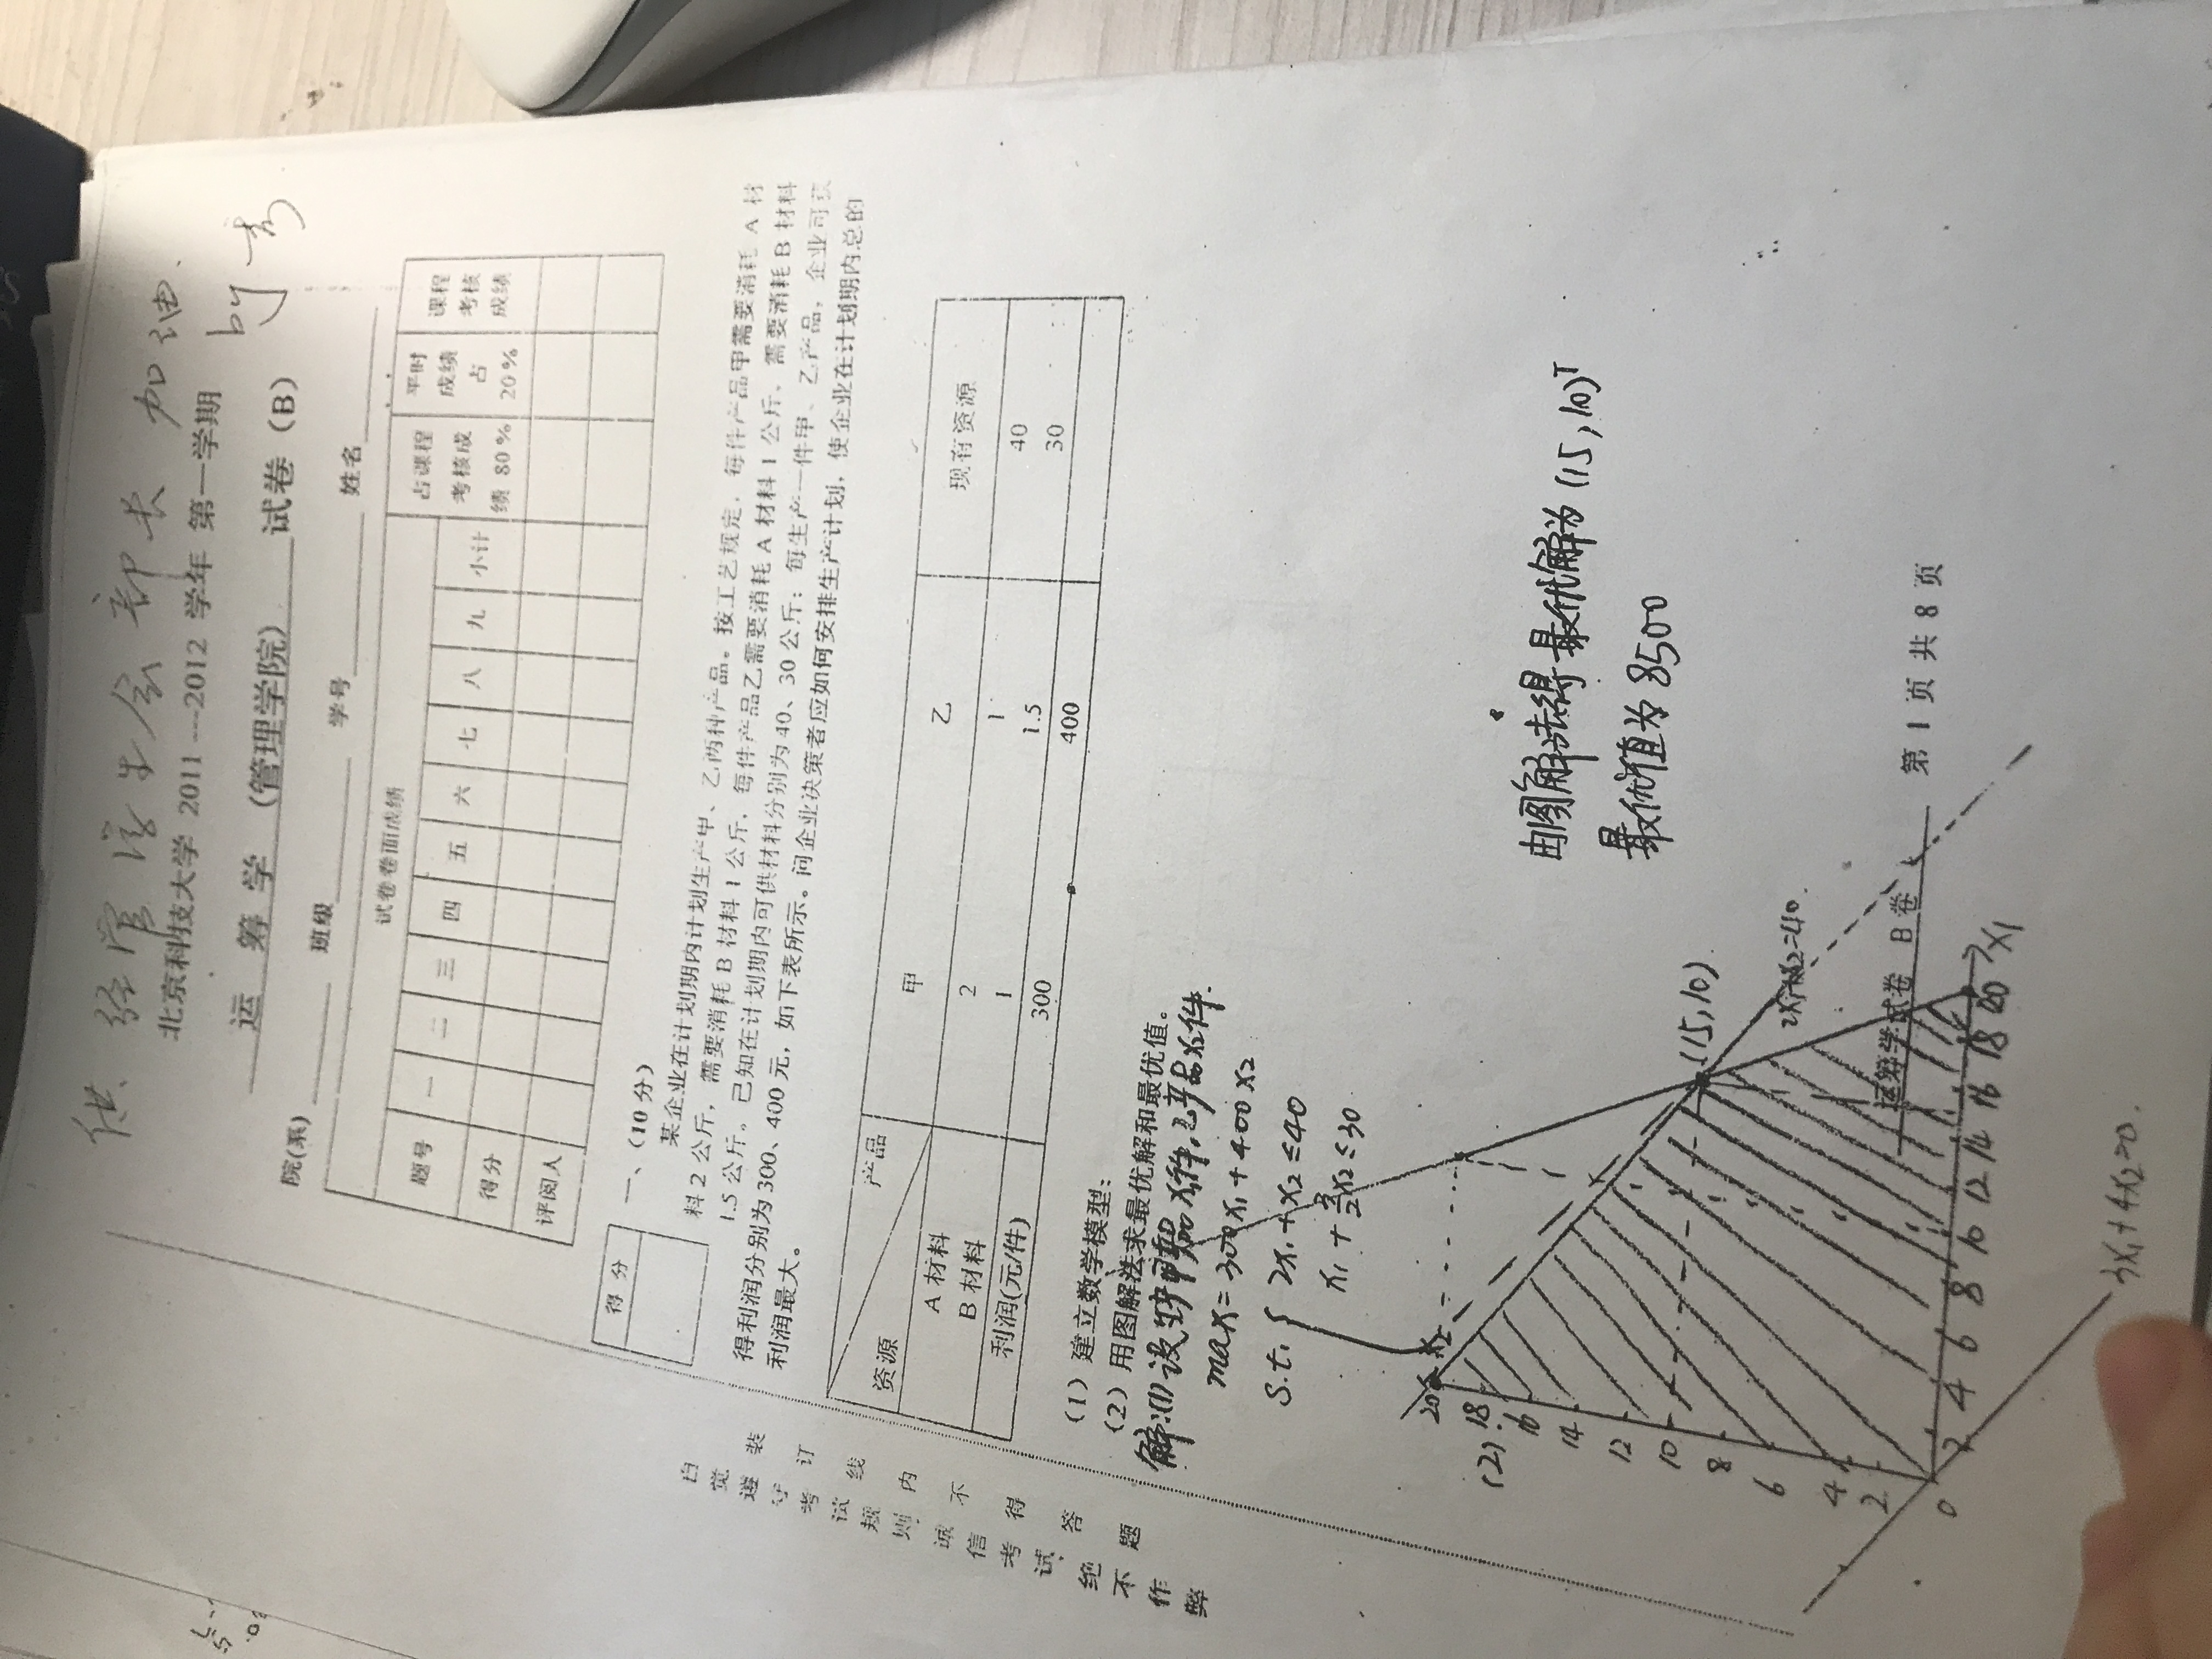 供 经管学生会部长 加油.
by 秀
北京科技大学 2011 ---2012 学年 第一学期
运 筹 学 (管理学院) 试卷(B)
院(系) 班级 学号 姓名
试卷卷面成绩
占课程考核成绩 80%
平时成绩占 20%
课程考核成绩
题号 一 二 三 四 五 六 七 八 九 小计
得分
评阅人
得 分
一、(10 分)
某企业在计划期内计划生产甲、乙两种产品。按工艺规定,每件产品甲需要消耗 A 材
料 2 公斤,需要消耗 B 材料 1 公斤,每件产品乙需要消耗 A 材料 1 公斤、需要消耗 B 材料
1.5 公斤。已知在计划期内可供材料分别为 40、30 公斤;每生产一件甲、乙产品,企业可获
得利润分别为 300、400 元,如下表所示。问企业决策者应如何安排生产计划,使企业在计划期内总的
利润最大。
产品
资源
甲 乙 现有资源
A 材料 2 1 40
B 材料 1 1.5 30
利润(元/件) 300 400
(1)建立数学模型;
(2)用图解法求最优解和最优值。
自觉遵守考试规则,诚信考试,绝不作弊
装订线内不得答题
解:(1) 设生产甲产品x₁件,乙产品x₂件.
max = 300x₁ + 400x₂
s.t. { 2x₁ + x₂ ≤ 40
x₁ + 3/2 x₂ ≤ 30
(2)
x₂
20
18
16
14
12
10
8
6
4
2
0 2 4 6 8 10 12 14 16 18 20 x₁
(15,10)
2x₁+x₂=40
3x₁+4x₂=0.
由图解法得 最优解为 (15,10)ᵀ
最优值为 8500
运筹学试卷 B 卷 第 1 页 共 8 页